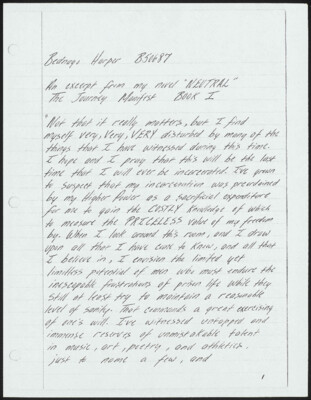 Bednago Harper B50687
An excerpt from my novel "NEUTRAL"
The Journey Manifest Book I
"Not that it really matters, but I find
myself very, Very, VERY disturbed by many of the
things that I have witnessed during this time.
I hope and I pray that this will be the last
time that I will ever be incarcerated. I've grown
to suspect that my incarceration was preordained
by my Higher Power as a sacrificial expenditure
for me to gain the COSTLY knowledge of which
to measure the PRICELESS value of my freedom
by. When I look around this room, and I draw
upon all that I have come to know, and all that
I believe in, I envision the limited yet
limitless potential of men who must endure the
inescapable frustrations of prison life while they
still at least try to maintain a reasonable
level of sanity. That commands a great exercising
of one's will. I've witnessed untapped and
immense reserves of unmistakable talent
in music, art, poetry, and athletics.
just to name a few, and
1